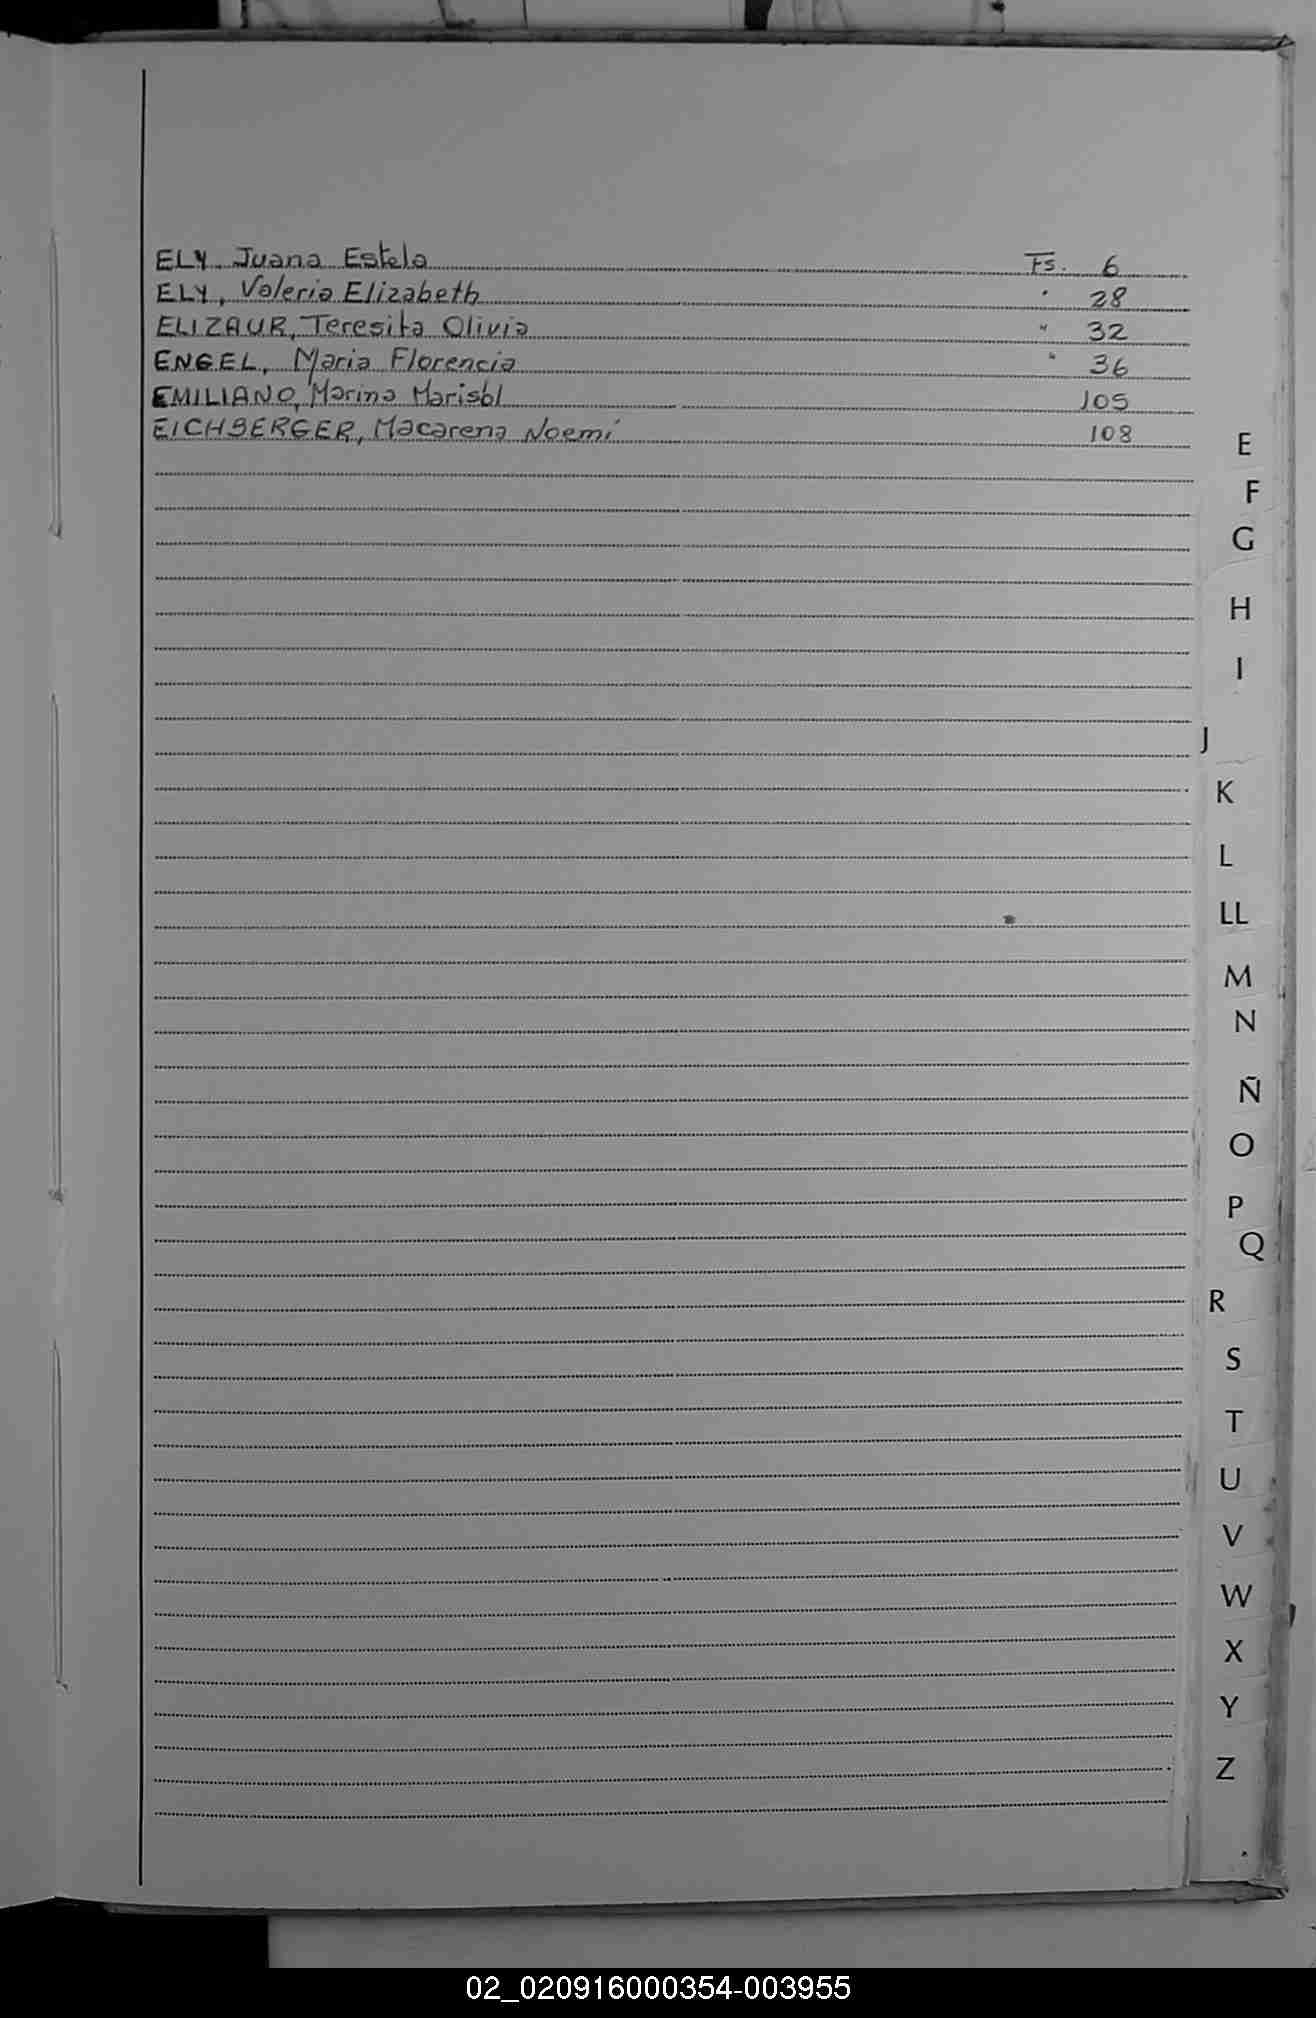 ELY, Juana Estela Fs. 6
ELY, Valeria Elizabeth " 28
ELIZAUR, Teresita Olivia " 32
ENGEL, Maria Florencia " 36
EMILIANO, Marina Marisol 105
EICHBERGER, Macarena Noemí 108
E
F
G
H
I
J
K
L
LL
M
N
Ñ
O
P
Q
R
S
T
U
V
W
X
Y
Z
02_020916000354-003955